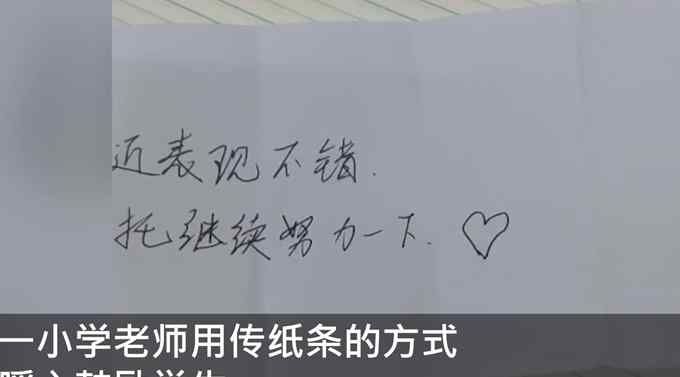 近表现不错.
托继续努力一下.
一小学老师用传纸条的方式